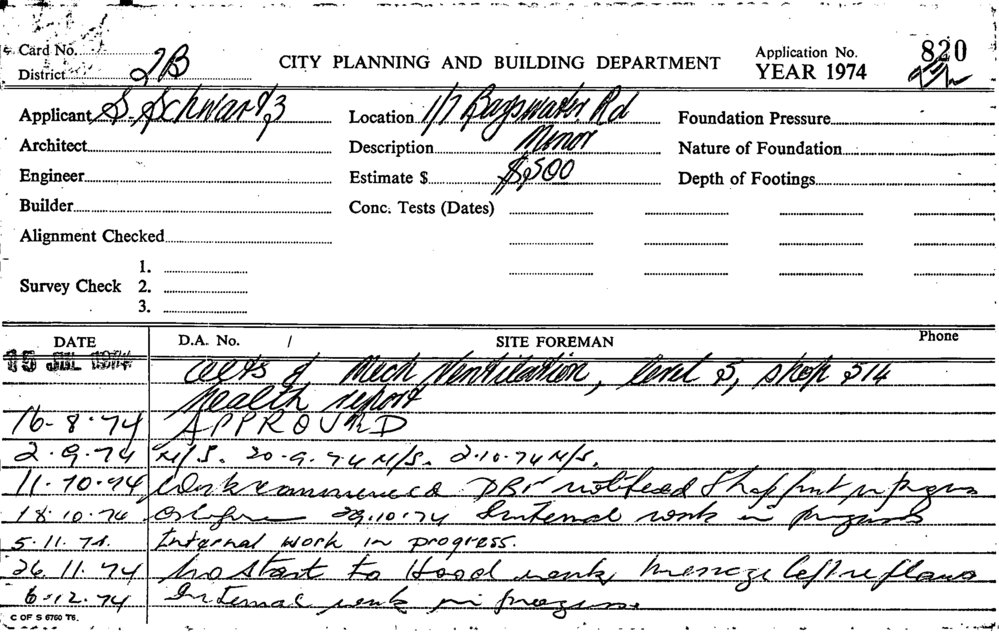 Card No.
District 2B
CITY PLANNING AND BUILDING DEPARTMENT
Application No. 820
YEAR 1974
Applicant S. Schwartz
Location 1/7 Bayswater Rd
Foundation Pressure
Architect
Description Minor
Nature of Foundation
Engineer
Estimate $ $500
Depth of Footings
Builder
Conc. Tests (Dates)
Alignment Checked
1.
Survey Check 2.
3.
DATE D.A. No. / SITE FOREMAN Phone
15 JUL 1974 alts & Mech Ventilation, level 5, shop 514
Health report
16-8-74 APPROVED
2.9.74 N/S. 20-9-74 N/S. 2-10-74 N/S.
11-10-74 Work commenced DBI notified Shop
18.10.74 29.10.74 Internal work in progress
5.11.74. Internal work in progress.
26.11.74 No start to Hood work, message left re plans
6.12.74 Internal work in progress
C OF S 6760 T6.